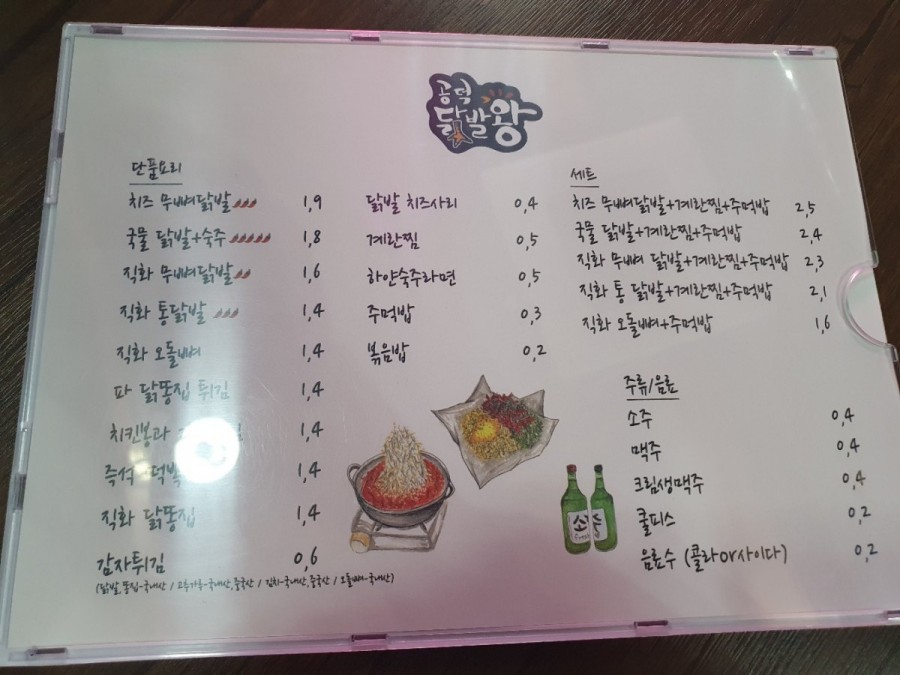 공덕
닭발왕
단품요리
치즈 무뼈닭발 1,9
국물 닭발+숙주 1,8
직화 무뼈닭발 1,6
직화 통닭발 1,4
직화 오돌뼈 1,4
파 닭똥집 튀김 1,4
치킨봉과 1,4
즉석 1,4
직화 닭똥집 1,4
감자튀김 0,6
(닭발,똥집-국내산 / 고추가루-국내산,중국산 / 김치-국내산,중국산 / 오돌뼈-국내산)
닭발 치즈사리 0,4
계란찜 0,5
하얀숙주라면 0,5
주먹밥 0,3
볶음밥 0,2
세트
치즈 무뼈닭발+계란찜+주먹밥 2,5
국물 닭발+계란찜+주먹밥 2,4
직화 무뼈 닭발+계란찜+주먹밥 2,3
직화 통 닭발+계란찜+주먹밥 2,1
직화 오돌뼈+주먹밥 1,6
주류/음료
소주 0,4
맥주 0,4
크림생맥주 0,4
쿨피스 0,2
음료수 (콜라or사이다) 0,2
소주